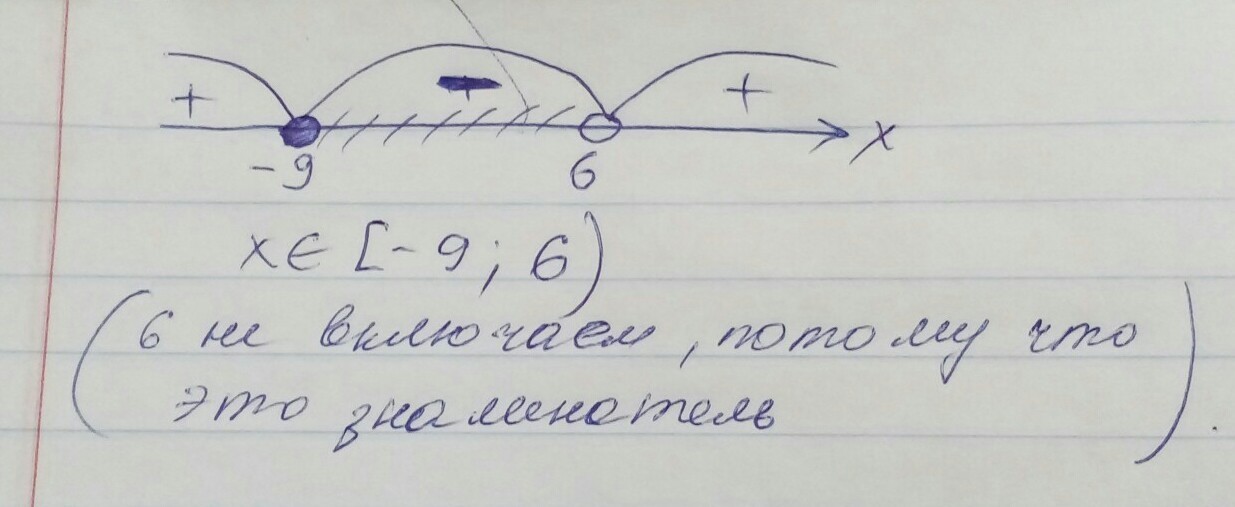 + - +
-9 6 x
x ∈ [-9; 6)
(6 не включаем, потому что
это знаменатель).